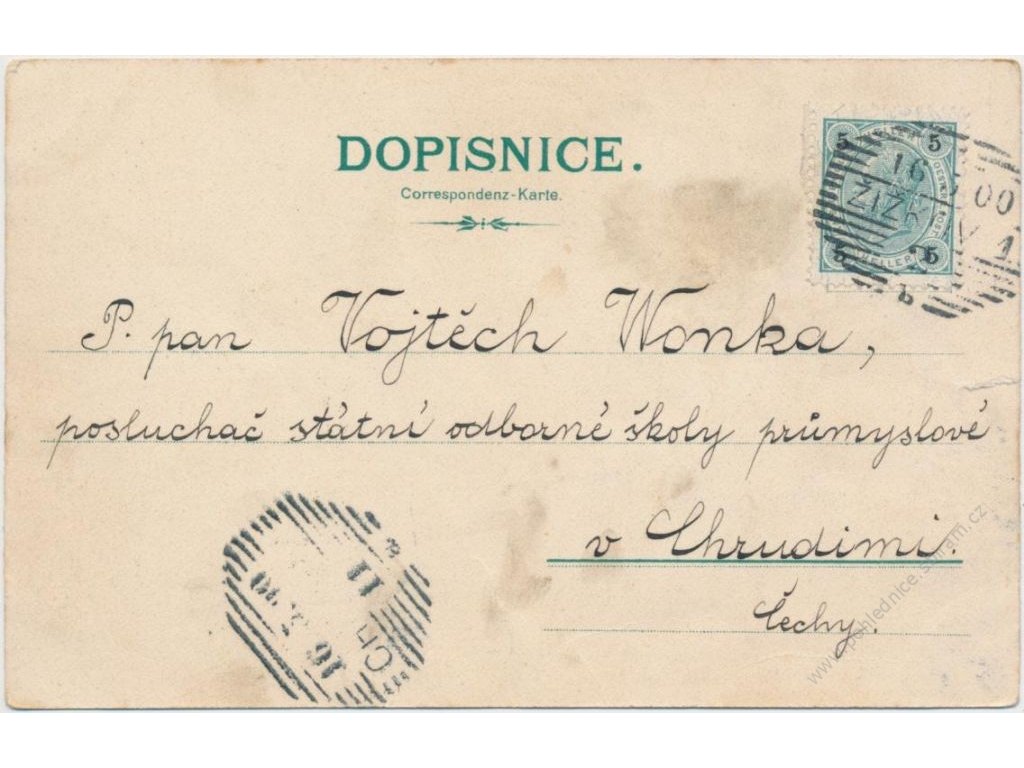 DOPISNICE.
Correspondenz-Karte.
5 HELLER 5
5 HELLER 5
16 00
P. pan Vojtěch Wonka,
posluchač státní odborné školy průmyslové
v Chrudimi.
Čechy.
11
16 3 00
www.pohlednice.sberam.cz